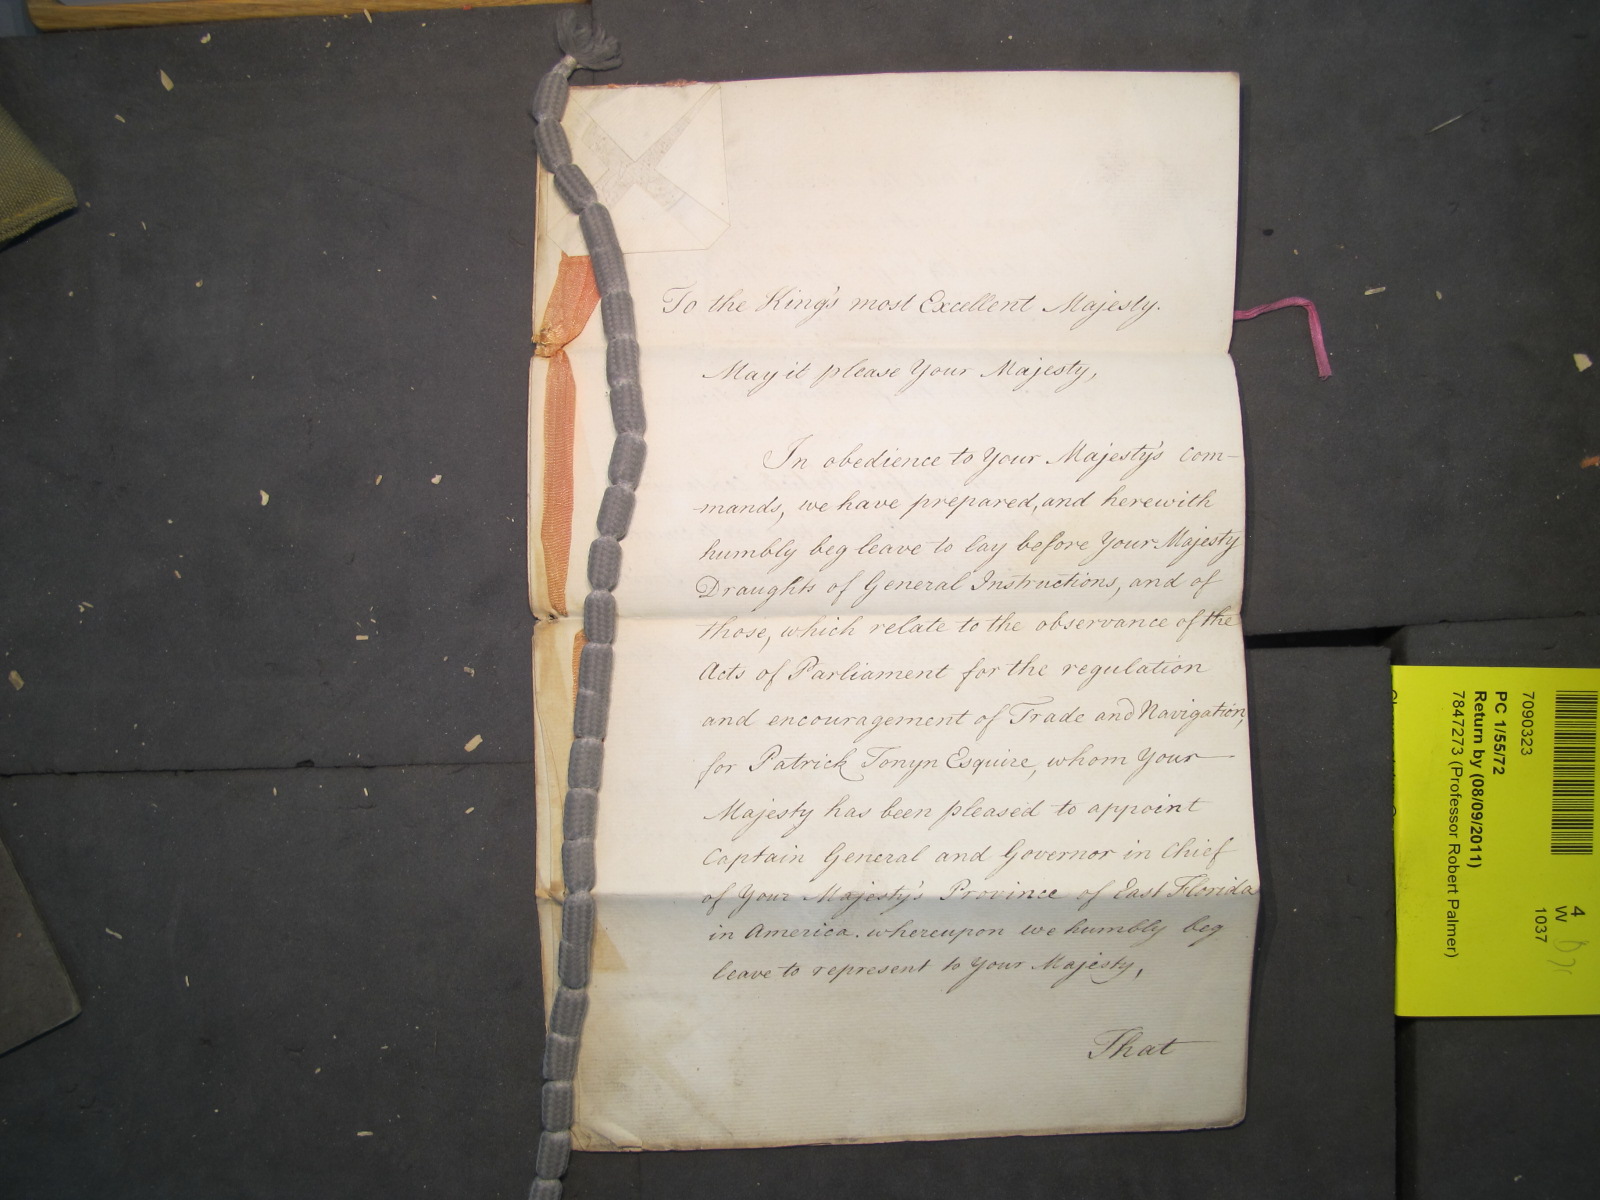 To the King's most Excellent Majesty.
May it please Your Majesty,
In obedience to Your Majesty's com-
-mands, we have prepared, and herewith
humbly beg leave to lay before Your Majesty
Draughts of General Instructions, and of
those, which relate to the observance of the
Acts of Parliament for the regulation
and encouragement of Trade and Navigation,
for Patrick Tonyn Esquire, whom Your
Majesty has been pleased to appoint
Captain General and Governor in Chief
of Your Majesty's Province of East Florida
in America. whereupon we humbly beg
leave to represent to Your Majesty,
That
7090323
PC 1/55/72
Return by (08/09/2011)
7847273 (Professor Robert Palmer)
4
W
1037